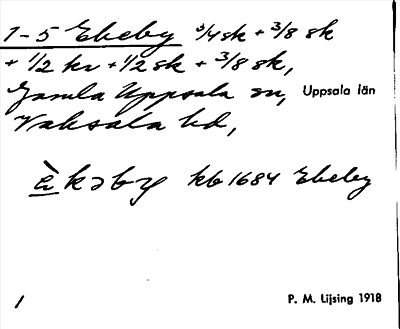 1-5 Ekeby 3/4 sk + 3/8 sk
+ 1/2 kr + 1/2 sk + 3/8 sk,
Gamla Uppsala sn, Uppsala län
Vaksala hd,
è̱kəby kb 1684 Ekeby
1 P. M. Lijsing 1918